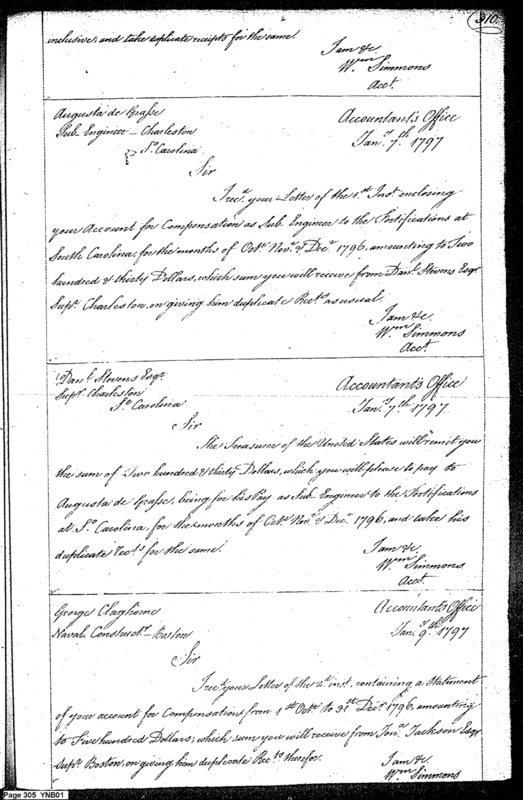 310.
inclusive, and take duplicate receipts for the same.
I am &c.
Wm Simmons
Acct.
Augusta de Grasse
Sub. Engineer – Charleston
So. Carolina
Accountant's Office
Jany. 7th. 1797
Sir
I recd. your Letter of the 1st Inst. enclosing
your Account for Compensation as Sub. Engineer to the Fortifications at
South Carolina, for the months of Octr. Novr. & Decr. 1796, amounting to Two
hundred & thirty Dollars, which sum you will receive from Danl. Stevens Esqr.
Supt. Charleston, on giving him duplicate Rects. as usual.
I am &c.
Wm Simmons
Acct.
Danl. Stevens Esqr.
Supt. Charleston
So. Carolina
Accountant's Office
Jany. 7th 1797.
Sir
The Treasurer of the United States will remit you
the sum of Two hundred & thirty Dollars, which you will please to pay to
Augusta de Grasse, being for his Pay as Sub. Engineer to the Fortifications
at So. Carolina, for the months of Octr. Novr. & Decr. 1796, and take his
duplicate rects. for the same.
I am &c.
Wm Simmons
Acct.
George Claghorne
Naval Constructr. – Boston
Accountant's Office
Jany. 9th. 1797
Sir
I recd. your Letter of the 2d. inst. containing a Statement
of your account for Compensations from 1st Octr. to 31st Decr. 1796, amounting
to Five hundred Dollars; which sum you will receive from Jona. Jackson Esqr.
Supt. Boston, on giving him duplicate Rects. therefor.
I am &c.
Wm Simmons
Page 305 YNB01